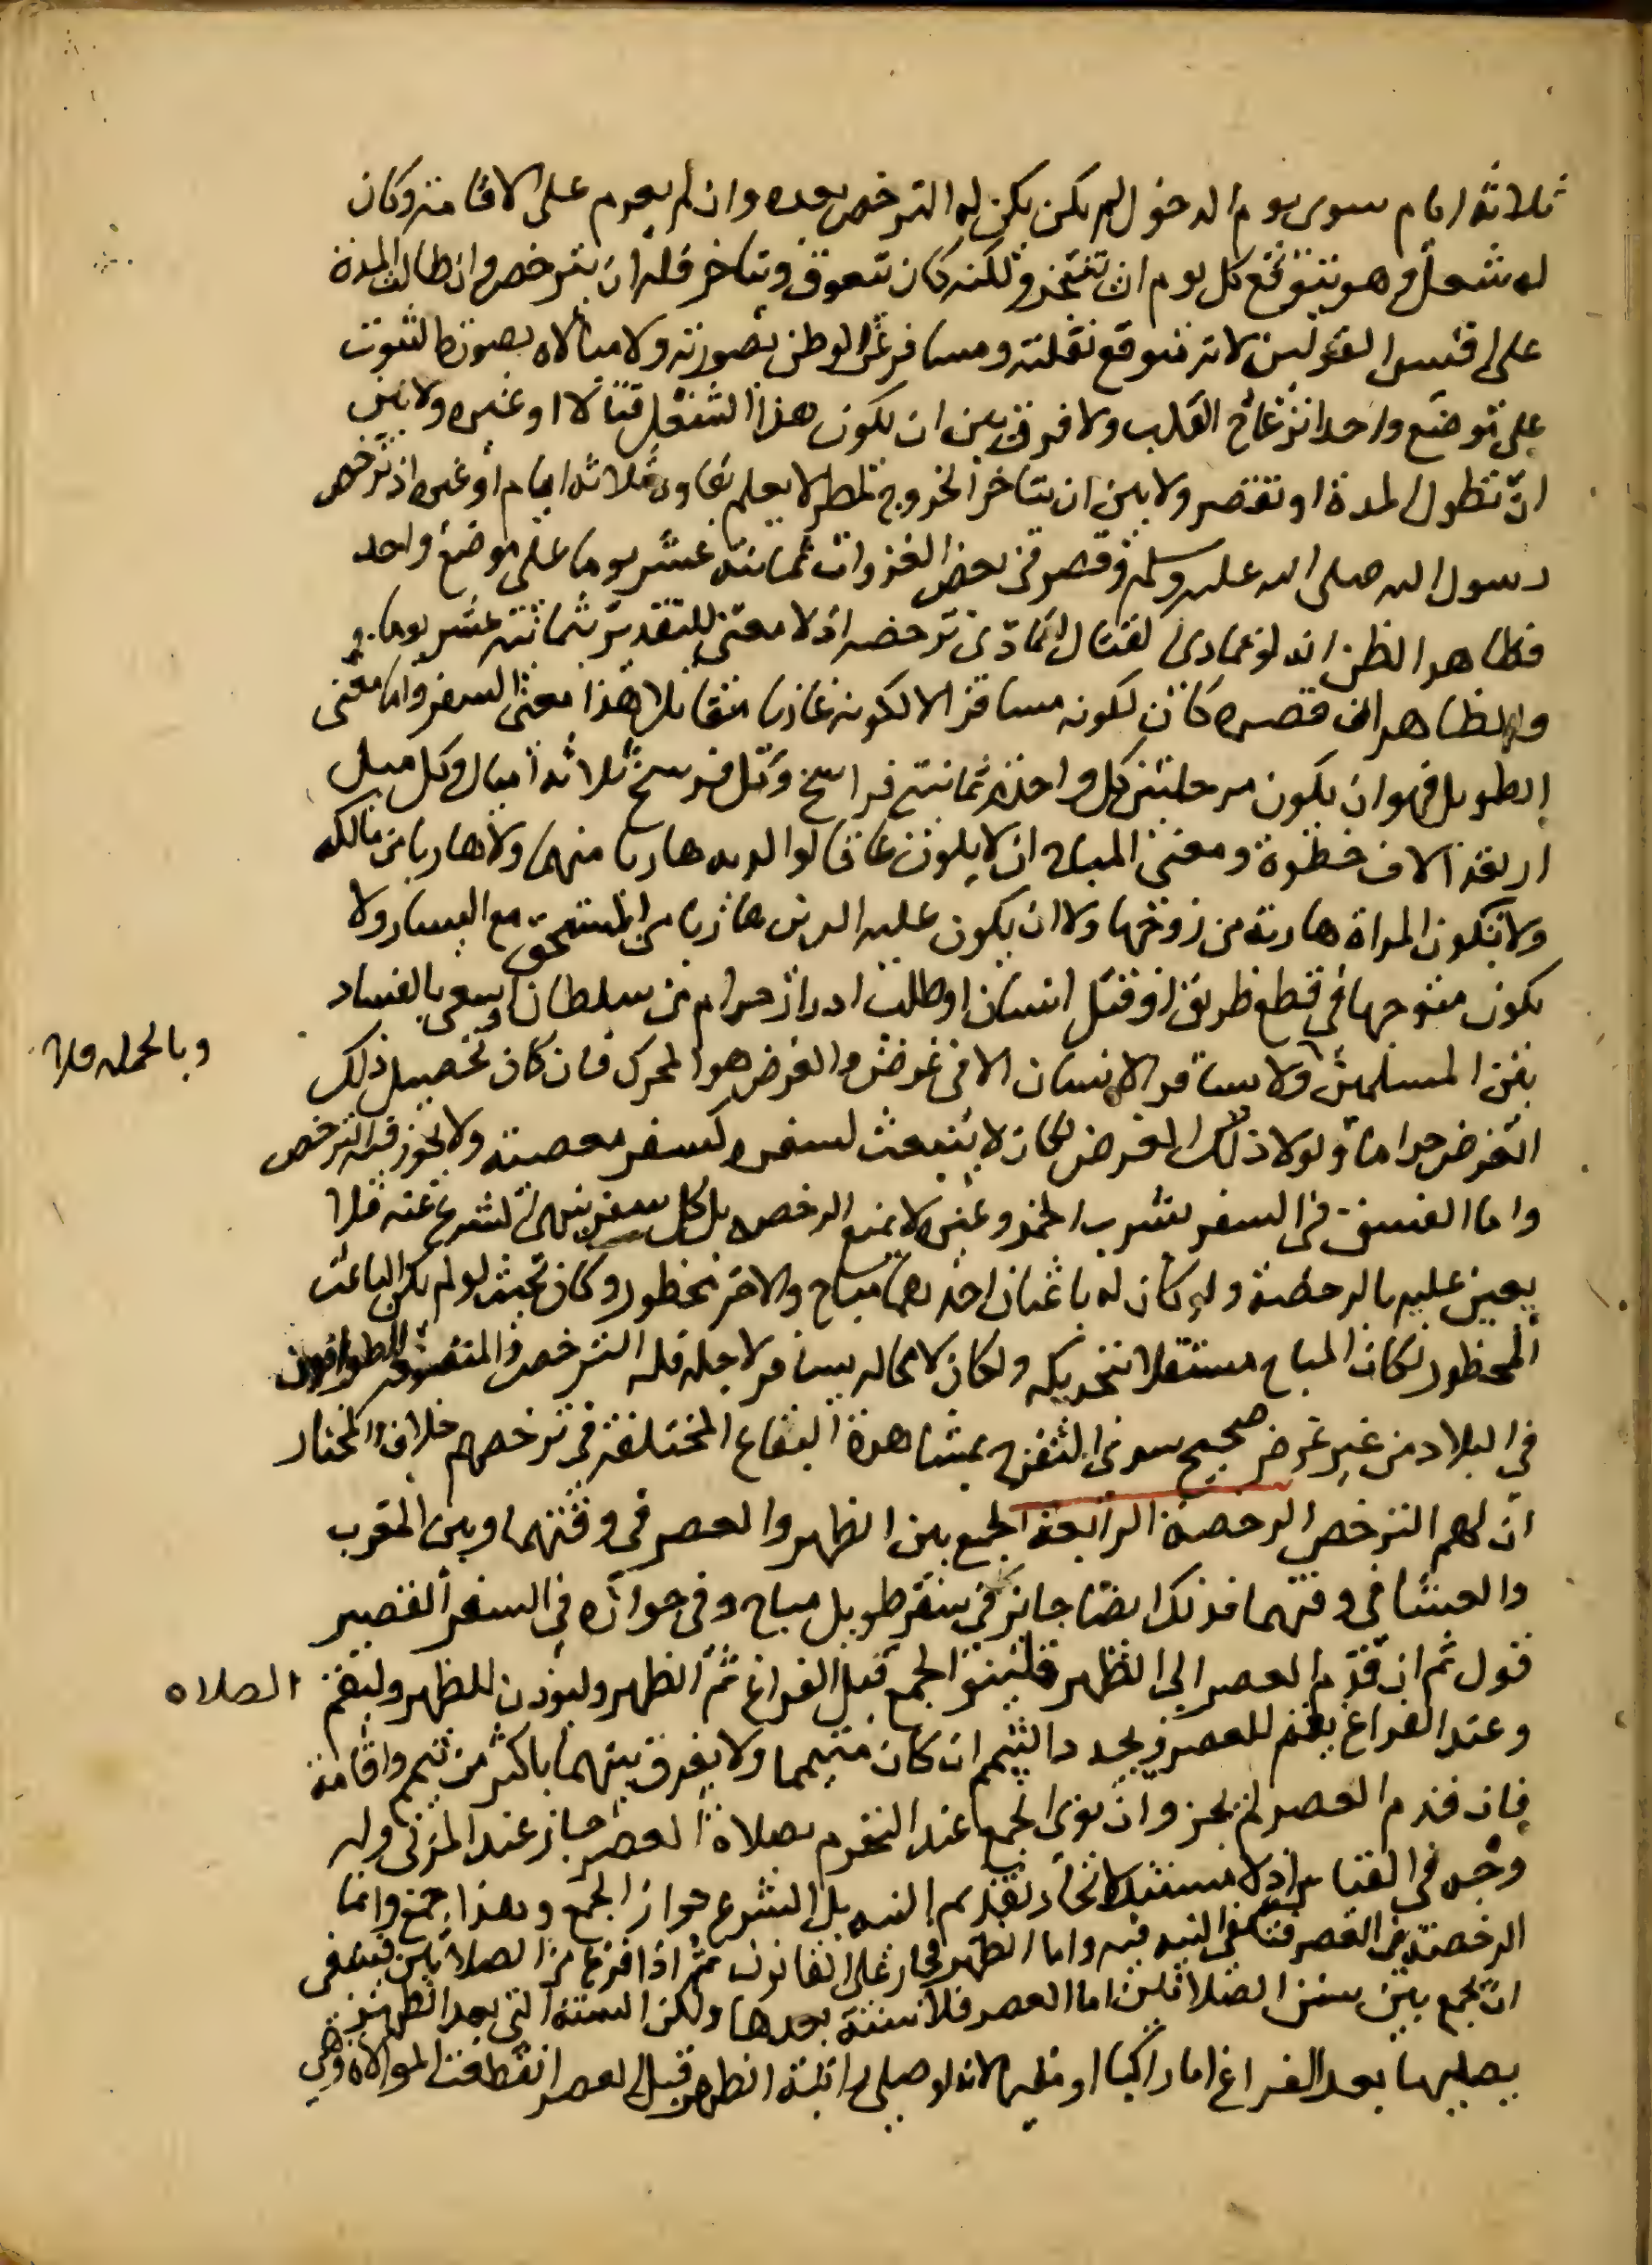 ثلاثة ايام سوى يوم الدخول لم يكن يكن له الترخص بعده وان لم يعزم على الاقامة وكان
له شغل وهو يتوقع كل يوم ان يتنجز ولكنه كان يتعوق ويتاخر فله ان يترخص وان طالت المدة
على اقيس القولين لانه يتوقع نقلته ومسافر عن الوطن بصورته ولا مبالاه بصورة الثبوت
على موضع واحد انزعاج القلب ولا فرق بين ان يكون هذا الشغل قتالا او غيره ولا بين
ان تطول المدة او تقصر ولا بين ان يتاخر الخروج لمطر لا يعلم بقاوه ثلاثه ايام او غيره اذ ترخص
رسول الله صلى الله عليه وسلم وقصر في بعض الغزوات ثمانية عشر يوما على موضع واحد
فظاهر الظن انه لو تمادى القتال لتمادى ترخصه اذ لا معنى للتقدير بثمانية عشر يوما و
والظاهر ان قصره كان لكونه مسافرا لا لكونه غازيا مقاتلا هذا معنى السفر واما معنى
الطويل فهو ان يكون مرحلتين كل واحدة ثمانية فراسخ وكل فرسخ ثلاثه اميال وكل ميل
اربعة آلاف خطوة ومعنى المباح ان لا يكون عاقا لوالديه هاربا منهما ولا هاربا من مالكه
ولا تكون المراة هاربة من زوجها ولا ان يكون عليه الدين هاربا من المستحق مع اليسار ولا
يكون متوجها في قطع طريق او قتل انسان او طلب ادرار حرام من سلطان او سعى بالفساد
بين المسلمين ولا يسافر الانسان الا في غرض والغرض هو المحرك فان كان تحصيل ذلك
وبالجمله فلا
الغرض حراما ولولا ذلك الغرض لكان لا ينبعث لسفره فسفره معصية ولا يجوز فيه الترخص
واما الفسق في السفر بشرب الخمر وغيره لا يمنع الرخصه بل كل سفر ينهى الشرع عنه فلا
يعين عليه بالرخصة ولو كان له باعثان احدهما مباح والاخر محظور وكان بحيث لو لم يكن الباعث
المحظور لكان المباح مستقلا بتحريكه ولكان لا محاله يسافر لاجله فله الترخص والمتصوفه الطوافون
في البلاد من غير غرض صحيح سوى التفرج بمشاهدة البقاع المختلفة في ترخصهم خلاف والمختار
ان لهم الترخص الرخصة الرابعة الجمع بين الظهر والعصر في وقتيهما وبين المغرب
والعشا في وقتيهما فذلك ايضا جائز في سفر طويل مباح وفي جوازه في السفر القصير
قول ثم ان قدم العصر الى الظهر فلينو الجمع قبل الفراغ من الظهر وليوذن للظهر وليقم
الصلاه
وعند الفراغ يقيم للعصر ويجدد التيمم ان كان متيمما ولا يفرق بينهما باكثر من تيمم واقامة
فان قدم العصر لم يجز وان نوى الجمع عند التحرم بصلاة العصر جاز عند المزنى وله
وجه في القياس اذ لا مستند لايجاد تقديم النيه بل الشرع جواز الجمع وهذا جمع وانما
الرخصة في العصر فتكفى النيه فيه واما الظهر فجار على القانون ثم اذا فرغ من الصلاتين فينبغى
ان يجمع بين سنن الصلاتين اما العصر فلا سنة بعدها ولكن السنة التى بعد الظهر
يصليها بعد الفراغ اما راكبا او مقيما لانه لو صلى راتبة الظهر قبل العصر انقطعت الموالاة وهى